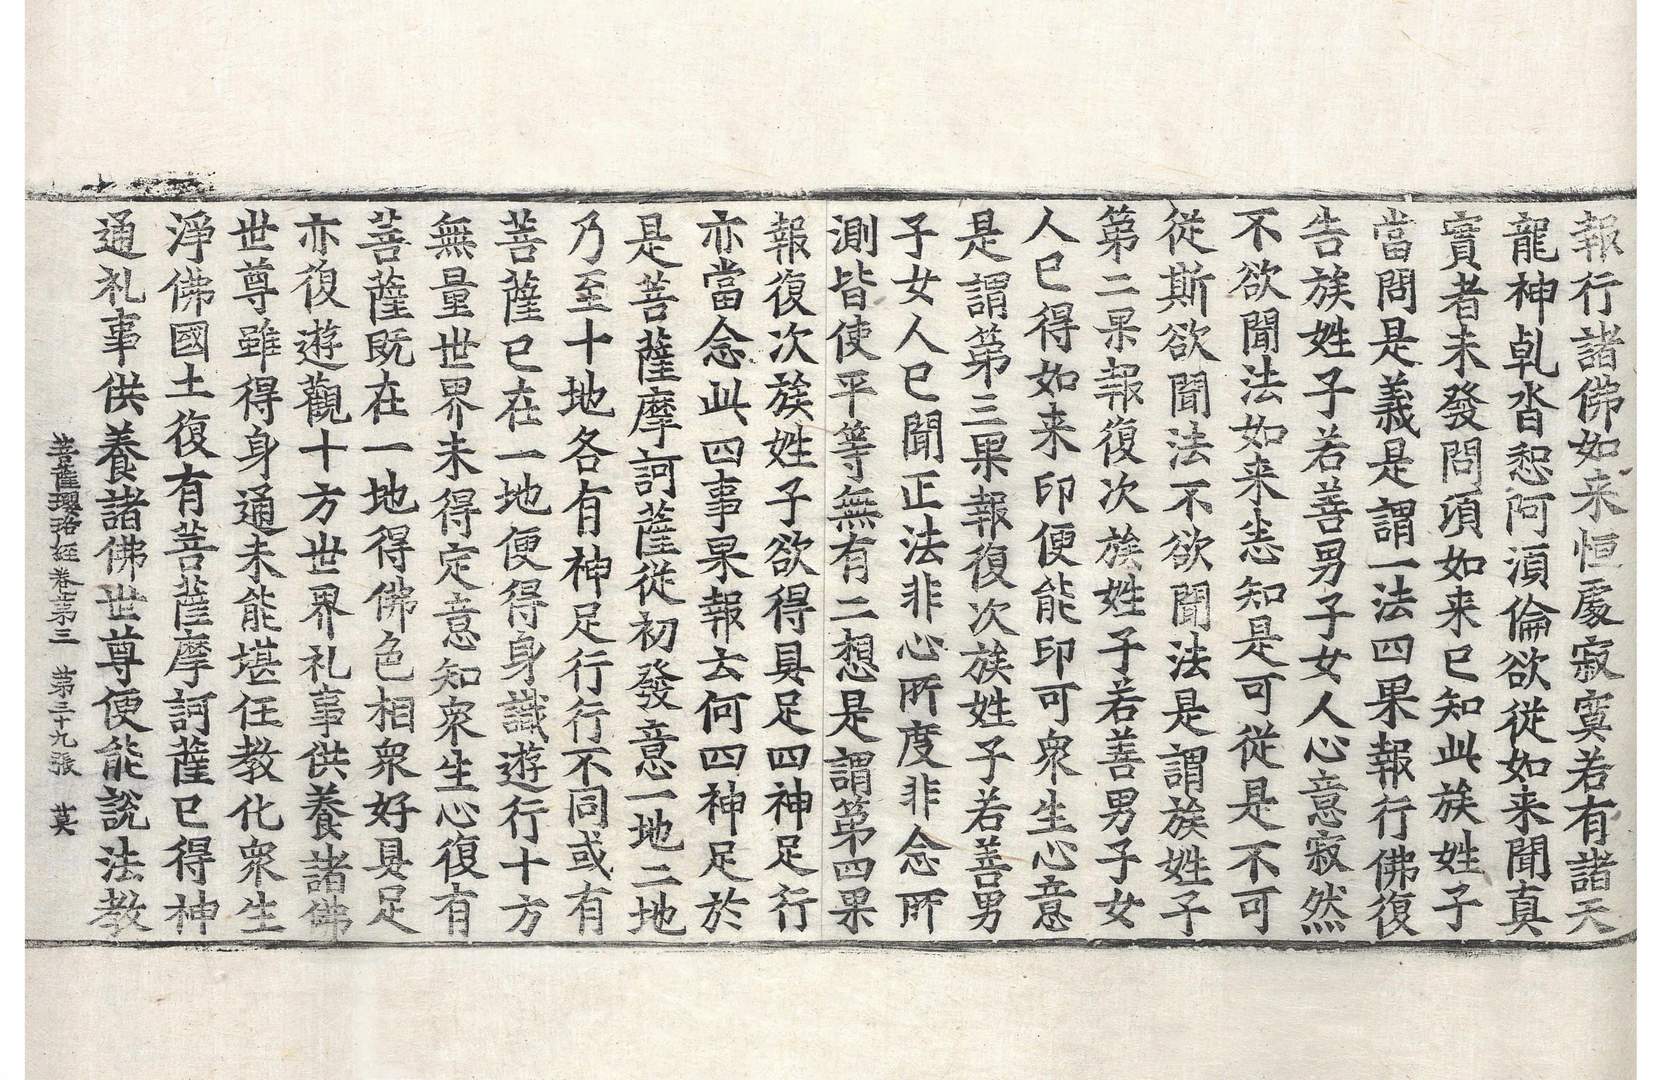 報行諸佛如来恒處寂寞若有諸天
龍神乹沓惒阿湏倫欲從如来聞真
實者未發問湏如来已知此族姓子
當問是義是謂一法四果報行佛復
告族姓子若善男子女人心意寂然
不欲聞法如来悉知是可從是不可
從斯欲聞法不欲聞法是謂族姓子
第二果報復次族姓子若善男子女
人已得如来印便能印可衆生心意
是謂第三果報復次族姓子若善男
子女人已聞正法非心所度非念所
測皆使平等無有二想是謂第四果
報復次族姓子欲得具足四神足行
亦當念此四事果報云何四神足於
是菩薩摩訶薩從初發意一地二地
乃至十地各有神足行行不同或有
菩薩已在一地便得身識遊行十方
無量世界未得定意知衆生心復有
菩薩既在一地得佛色相衆好具足
亦復遊觀十方世界礼事供養諸佛
世尊雖得身通未能堪任教化衆生
淨佛國土復有菩薩摩訶薩已得神
通礼事供養諸佛世尊便能說法教
菩薩瓔珞経卷第三 第三十九張 莫